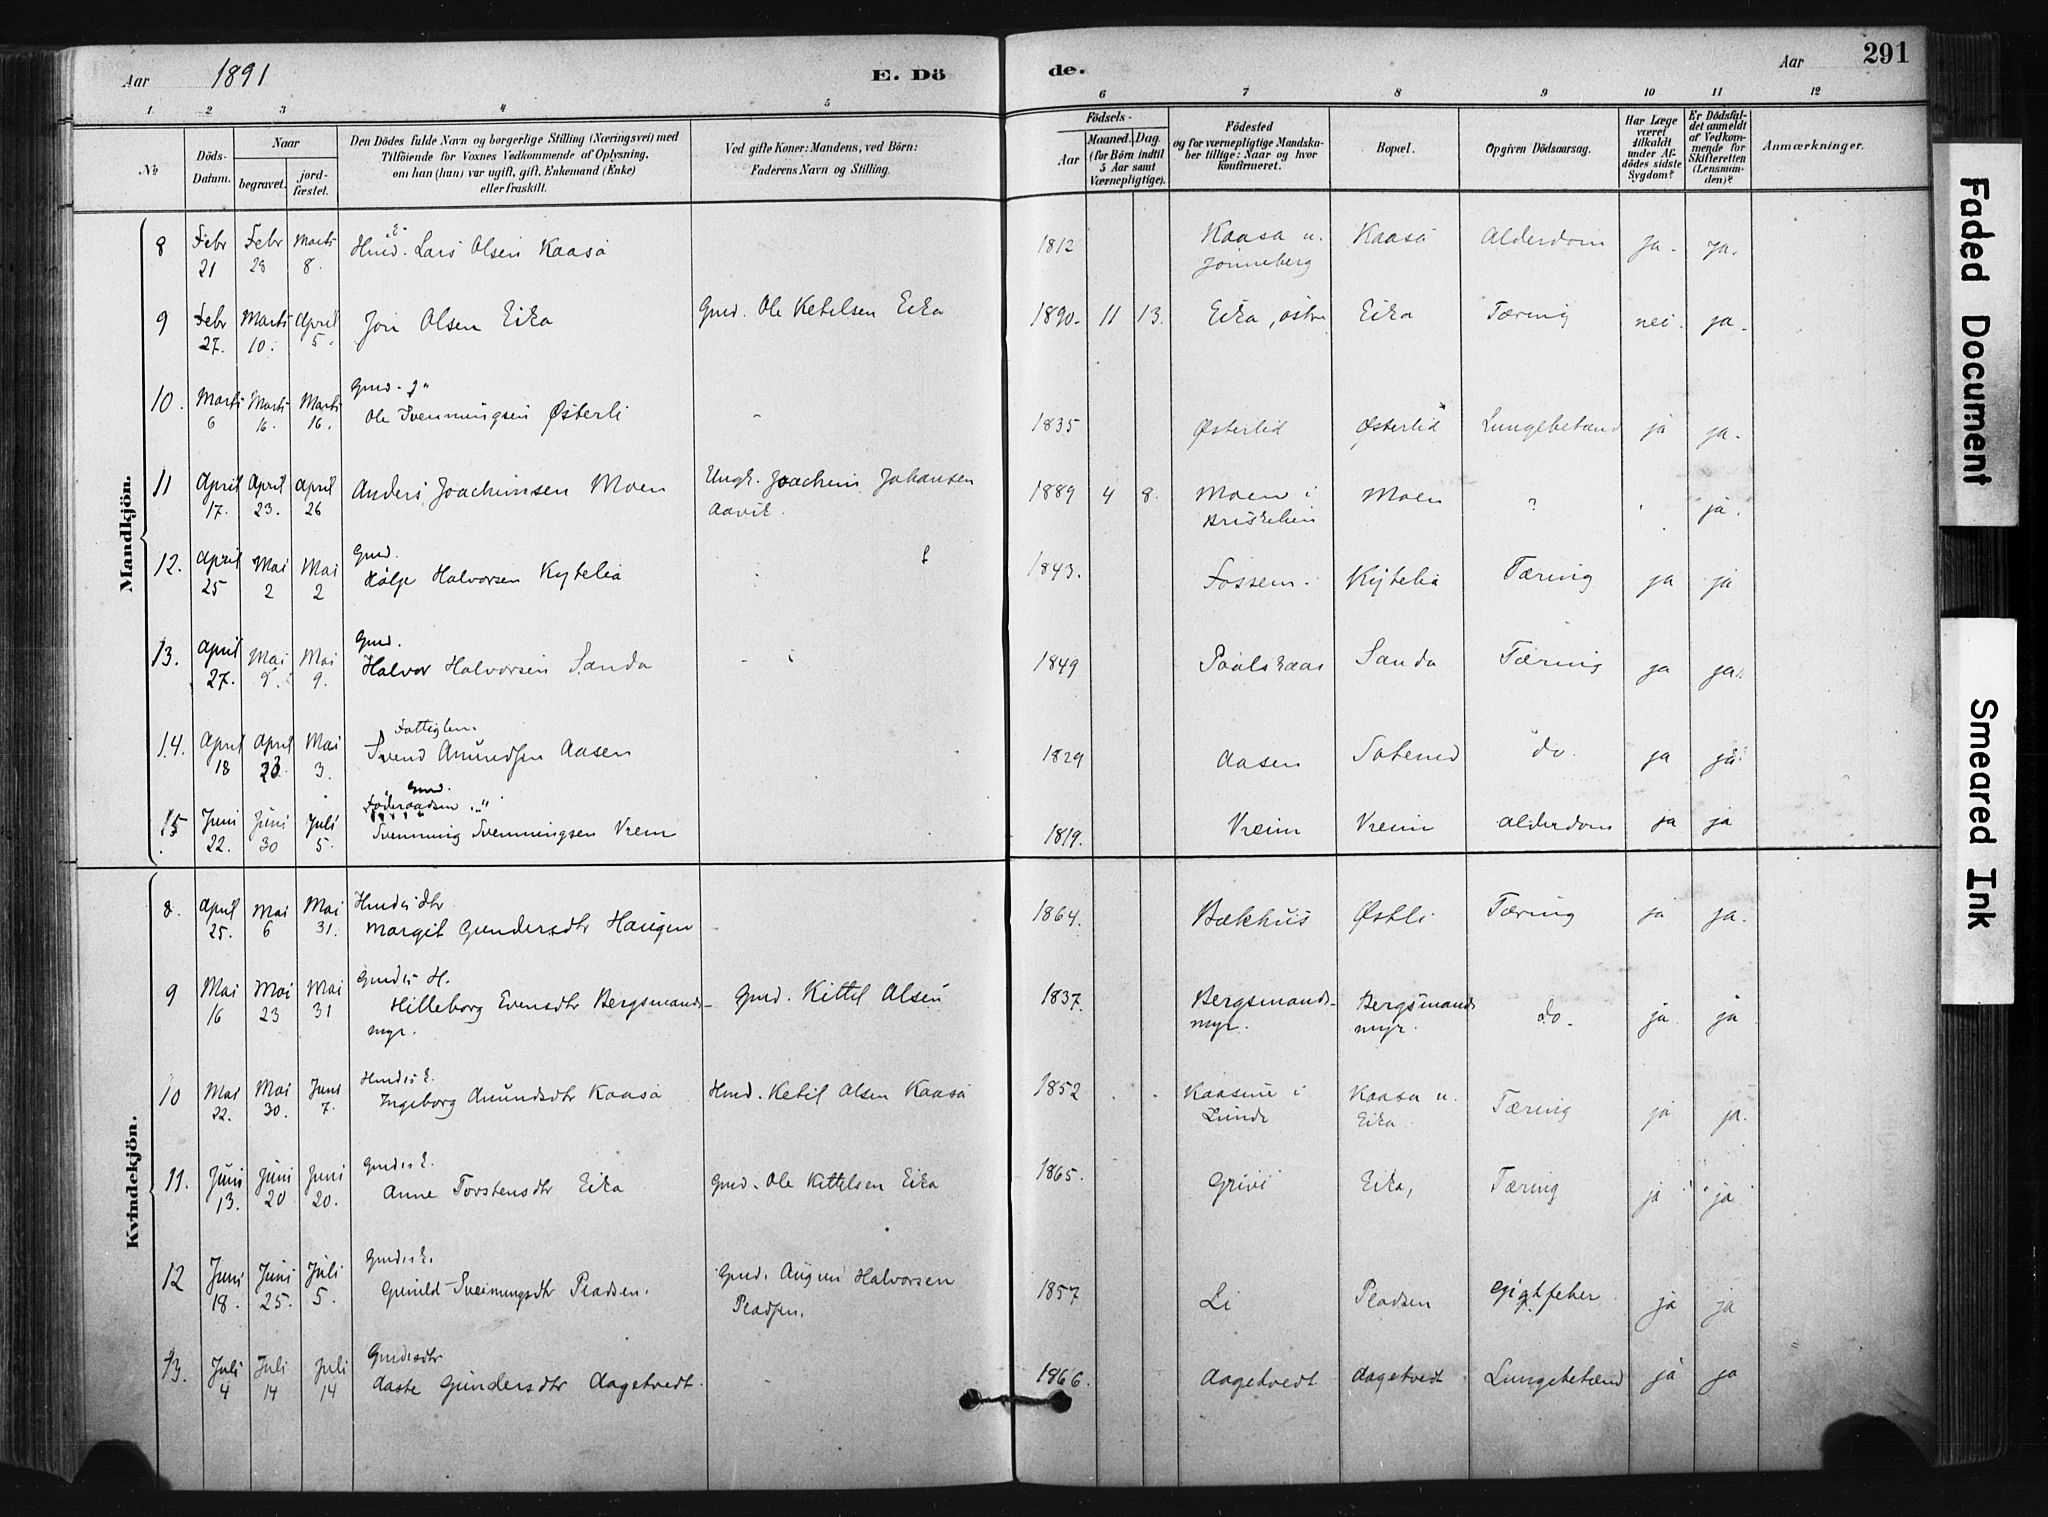 Aar 1891 E. Döde. Aar 291
1. 2 3 4 5 6 7 8 9 10 11 12
№
Döds-Datum.
Naar
begravet.
jord-fæstet.
Den Dödes fulde Navn og borgerlige Stilling (Næringsvei) med
Tilföiende for Voxnes Vedkommende af Oplysning,
om han (hun) var ugift, gift, Enkemand (Enke)
eller fraskilt.
Ved gifte Koner: Mandens, ved Börn:
Faderens Navn og Stilling.
Födsels-
Aar
Maaned. Dag.
(for Börn indtil
5 Aar samt
Værnepligtige).
Födested
og for værnepligtige Mandska-
ber tillige: Naar og hvor
konfirmeret.
Bopæl.
Opgiven Dödsaarsag.
Har Læge
været
tilkaldt
under Af-
dödes sidste
Sygdom?
Er Dödsfal-
det anmeldt
af Vedkom-
mende for
Skifteretten
(Lensman-
den)?
Anmærkninger.
Mandkjön.
8 Febr 21 Febr 28 Marts 8. Hmd. E. Lars Olsen Kaasa 1812 Kaasa u. Jonneberg Kaasa Alderdom ja. ja.
9 Febr 27. Marts 10. April 5. Jon Olsen Eika Gmd. Ole Ketelsen Eika 1890. 11 13. Eika, østre Eika Tæring nei. ja.
10. Marts 6 Marts 16. Marts 16. Gmd. g Ole Svenningsen Østerli 1835 Østerlid Østerlid Lungebetænd ja ja.
11 April 17. April 23. April 26 Anders Joachimsen Moen Ungk. Joachim Johansen Aavik. 1889 4 8. Moen i Moen ? ja.
12. April 25 Mai 2 Mai 2 Gmd. Kølje Halvorsen Kytelia 1843. Fossem. Kytelia Tæring ja ja
13. April 27. Mai 9. Mai 9. Gmd. Halvor Halvorsen Sanda 1849 Paalskaas Sanda Tæring ja ja.
14. April 18 April 23. Mai 3. Fattiglem. Svend Amundsen Aasen 1829 Aasen do. ja ja
15. Juni 22. Juni 30 Juli 5. Gmd. Föderaadsm. Svenning Svenningsen Vreim 1819. Vreim Vreim Alderdom ja ja
Kvindekjön.
8. April 25. Mai 6 Mai 31. Hmdsdtr Margit Gundersdtr Haugen 1864. Bækhus Østli Tæring ja ja.
9 Mai 16 Mai 23 Mai 31 Gmds H. Hilleborg Evensdtr Bergsmands-myr. Gmd. Kittil Olsen 1837. Bergsmands-myr. Bergsmands myr. do. ja ja
10 Mai 22. Mai 30. Juni 7. Hmds E. Ingeborg Amundsdtr Kaasa Hmd. Ketil Olsen Kaasa 1852 Kaasine i Lunde Kaasa u. Eika Tæring ja ja.
11. Juni 13. Juni 20 Juni 20. Gmds E. Anne Torstensdtr Eika Gmd. Ole Kittelsen Eika 1865. Grivi Eika, Tæring ja ja
12 Juni 18. Juni 25. Juli 5. Gmds E. Gunild Sveinungsdtr Pladsen. Gmd. Augun Halvorsen Pladsen. 1857 Li Pladsen Gigtfeber ja ja
13. Juli 4 Juli 14 Juli 14 Gmdsdtr Aaste Gundersdtr Aagetvedt. 1866. Aagetvedt Aagetvedt Lungebetænd ja ja
Faded Document
Smeared Ink